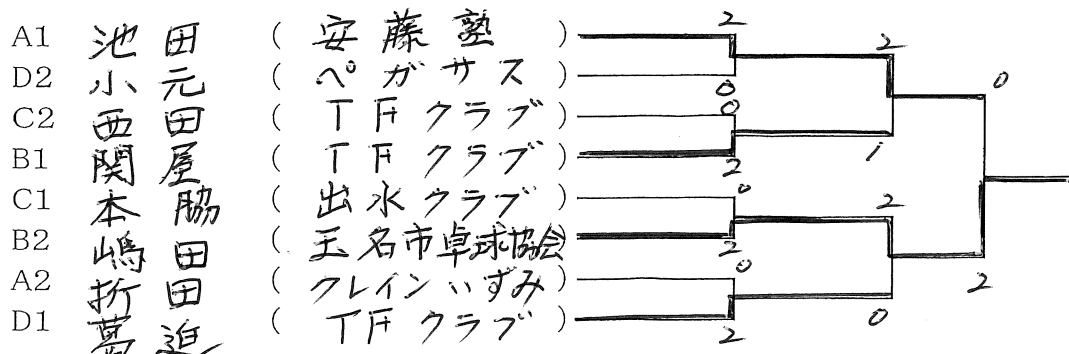 A1 池田 (安藤塾) 2
D2 小元 (ペガサス) 0
C2 西田 (TFクラブ) 0
B1 関屋 (TFクラブ) 2
C1 本脇 (出水クラブ) 0
B2 嶋田 (玉名市卓球協会) 2
A2 折田 (クレインいずみ) 0
D1 (TFクラブ) 2
2
1
2
0
0
2